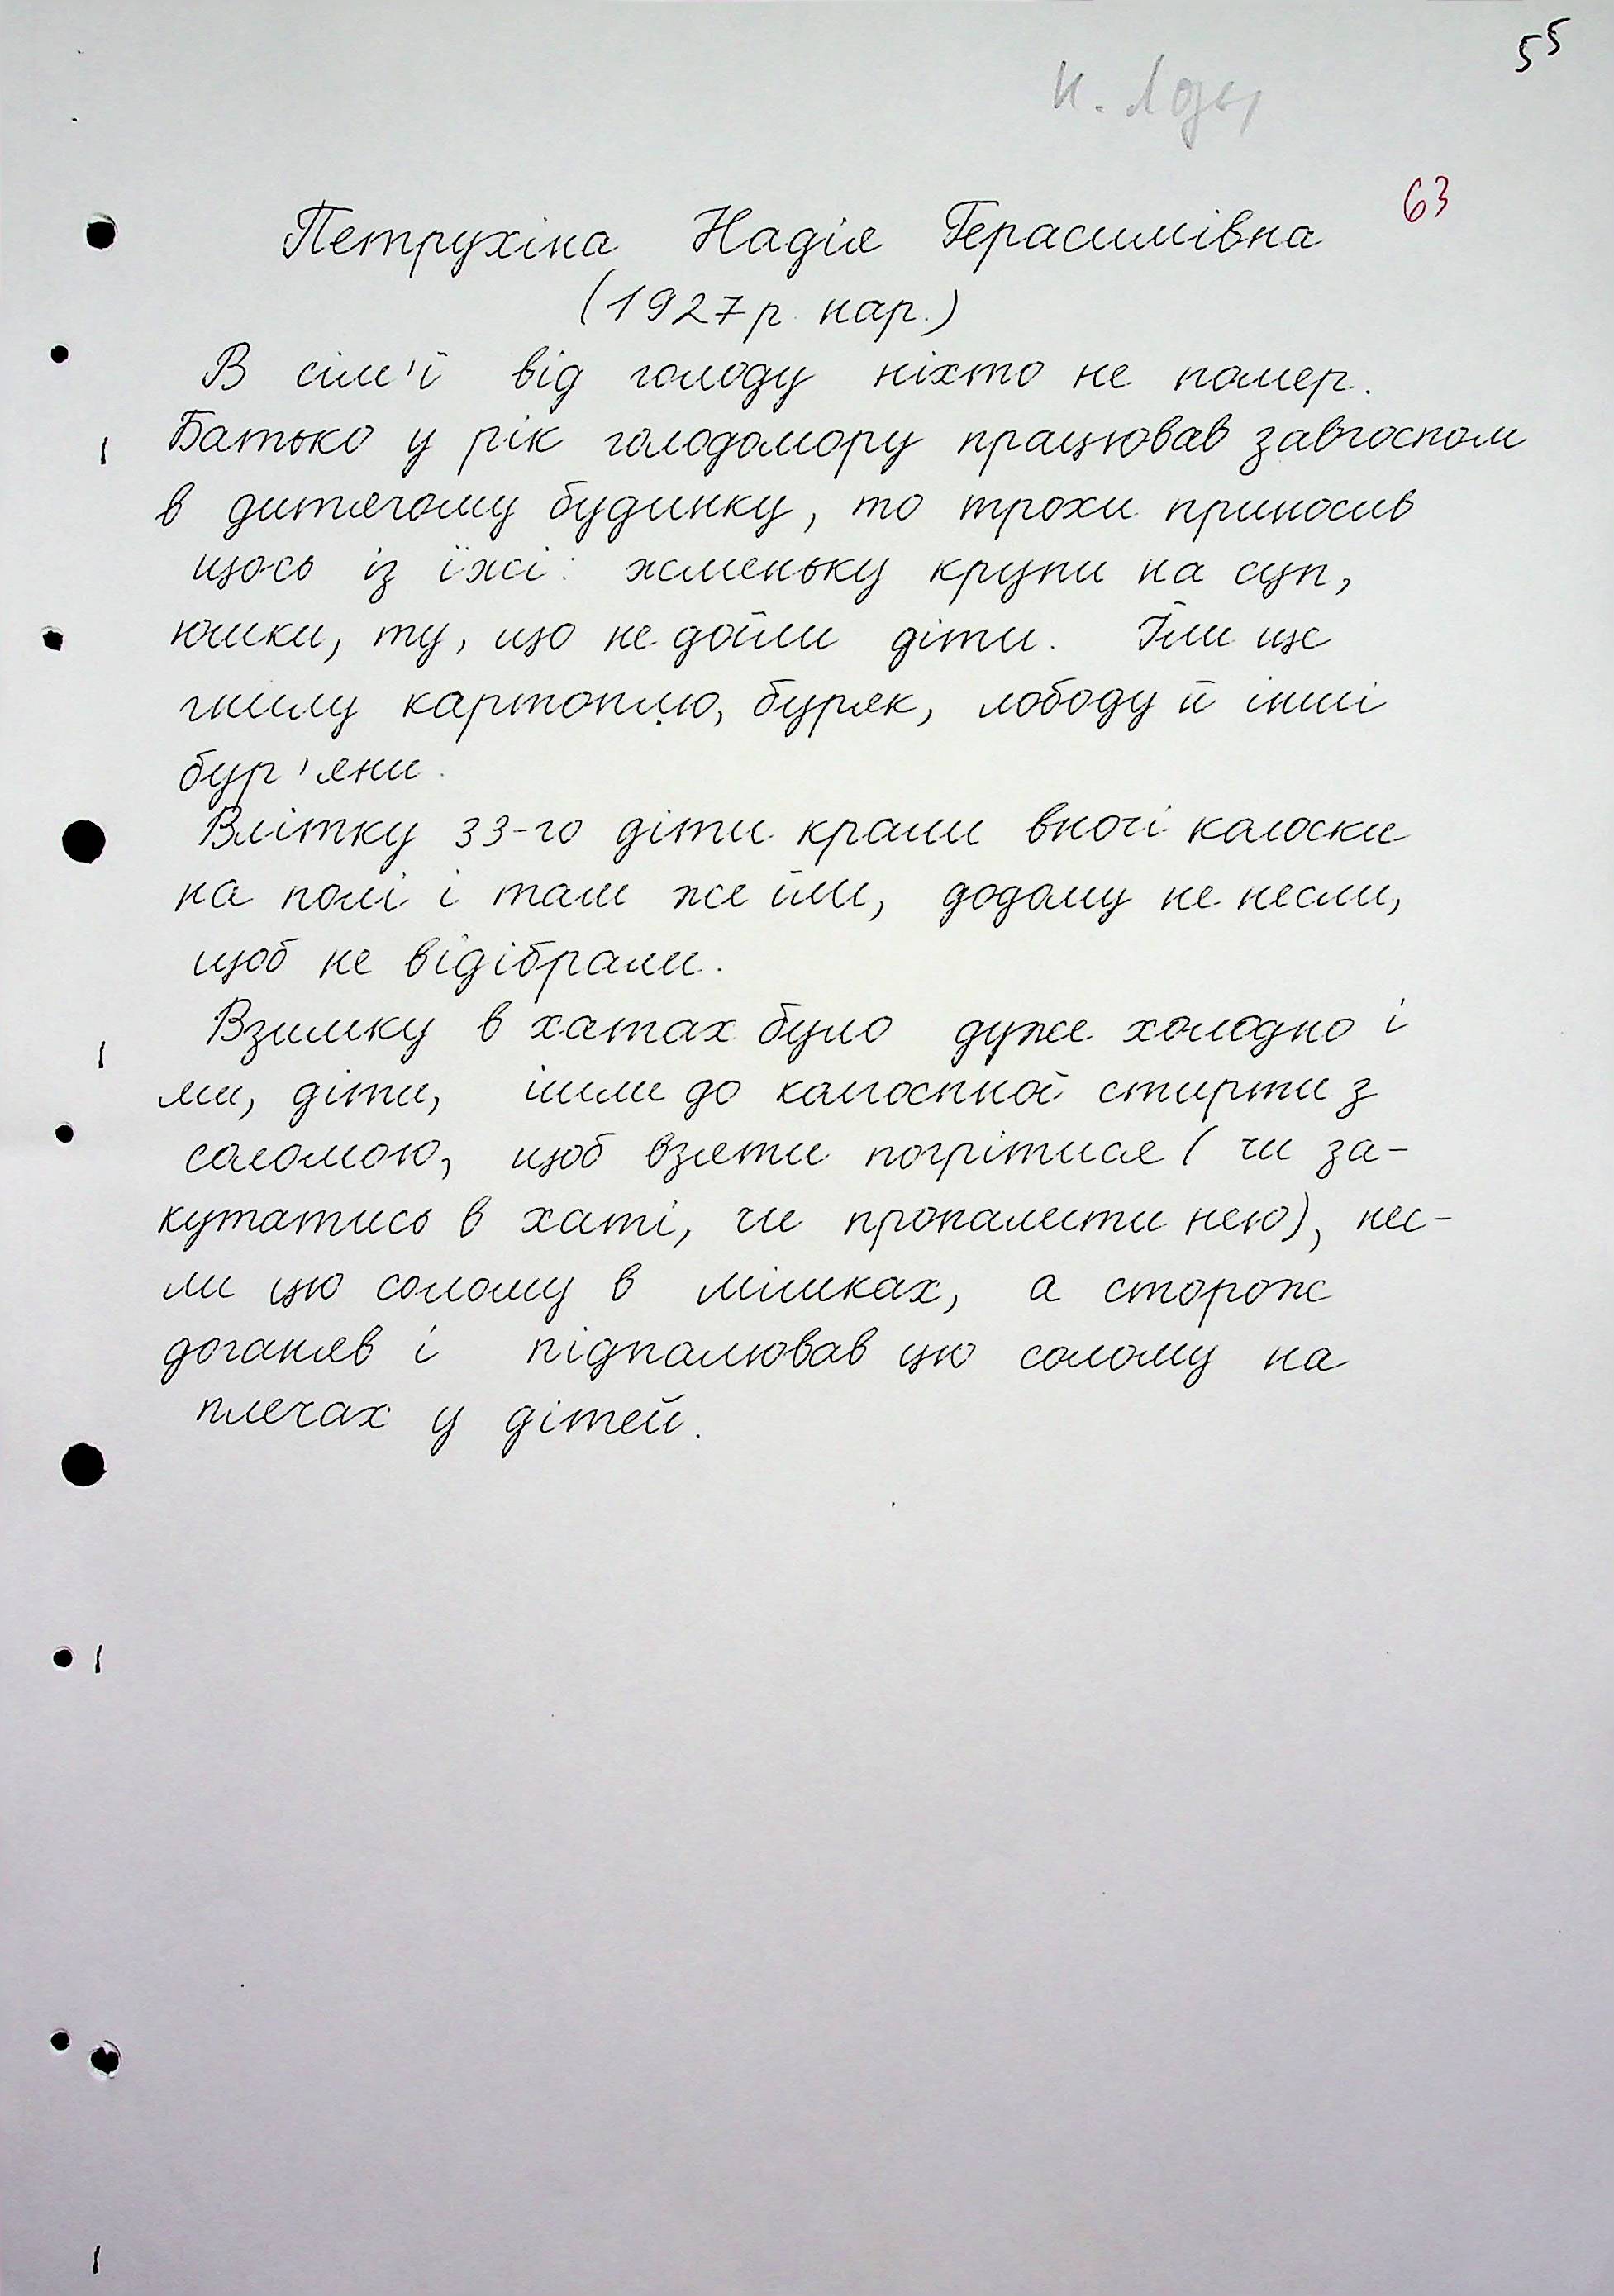 55
63
Петрухіна Надія Герасимівна
(1927 р. нар.)
В сім'ї від голоду ніхто не помер.
Батько у рік голодомору працював завгоспом
в дитячому будинку, то трохи приносив
щось із їжі: жменьку крупи на суп,
юшки, ту, що не доїли діти. Їли ще
гнилу картоплю, буряк, лободу й інші
бур'яни.
Влітку 33-го діти крали вночі колоски
на полі і там же їли, додому не несли,
щоб не відібрали.
Взимку в хатах було дуже холодно і
ми, діти, ішли до колгоспної стирти з
соломою, щоб взяти погрітися (чи за-
кутатись в хаті, чи пропалити нею), нес-
ли цю солому в мішках, а сторож
доганяв і підпалював цю солому на
плечах у дітей.